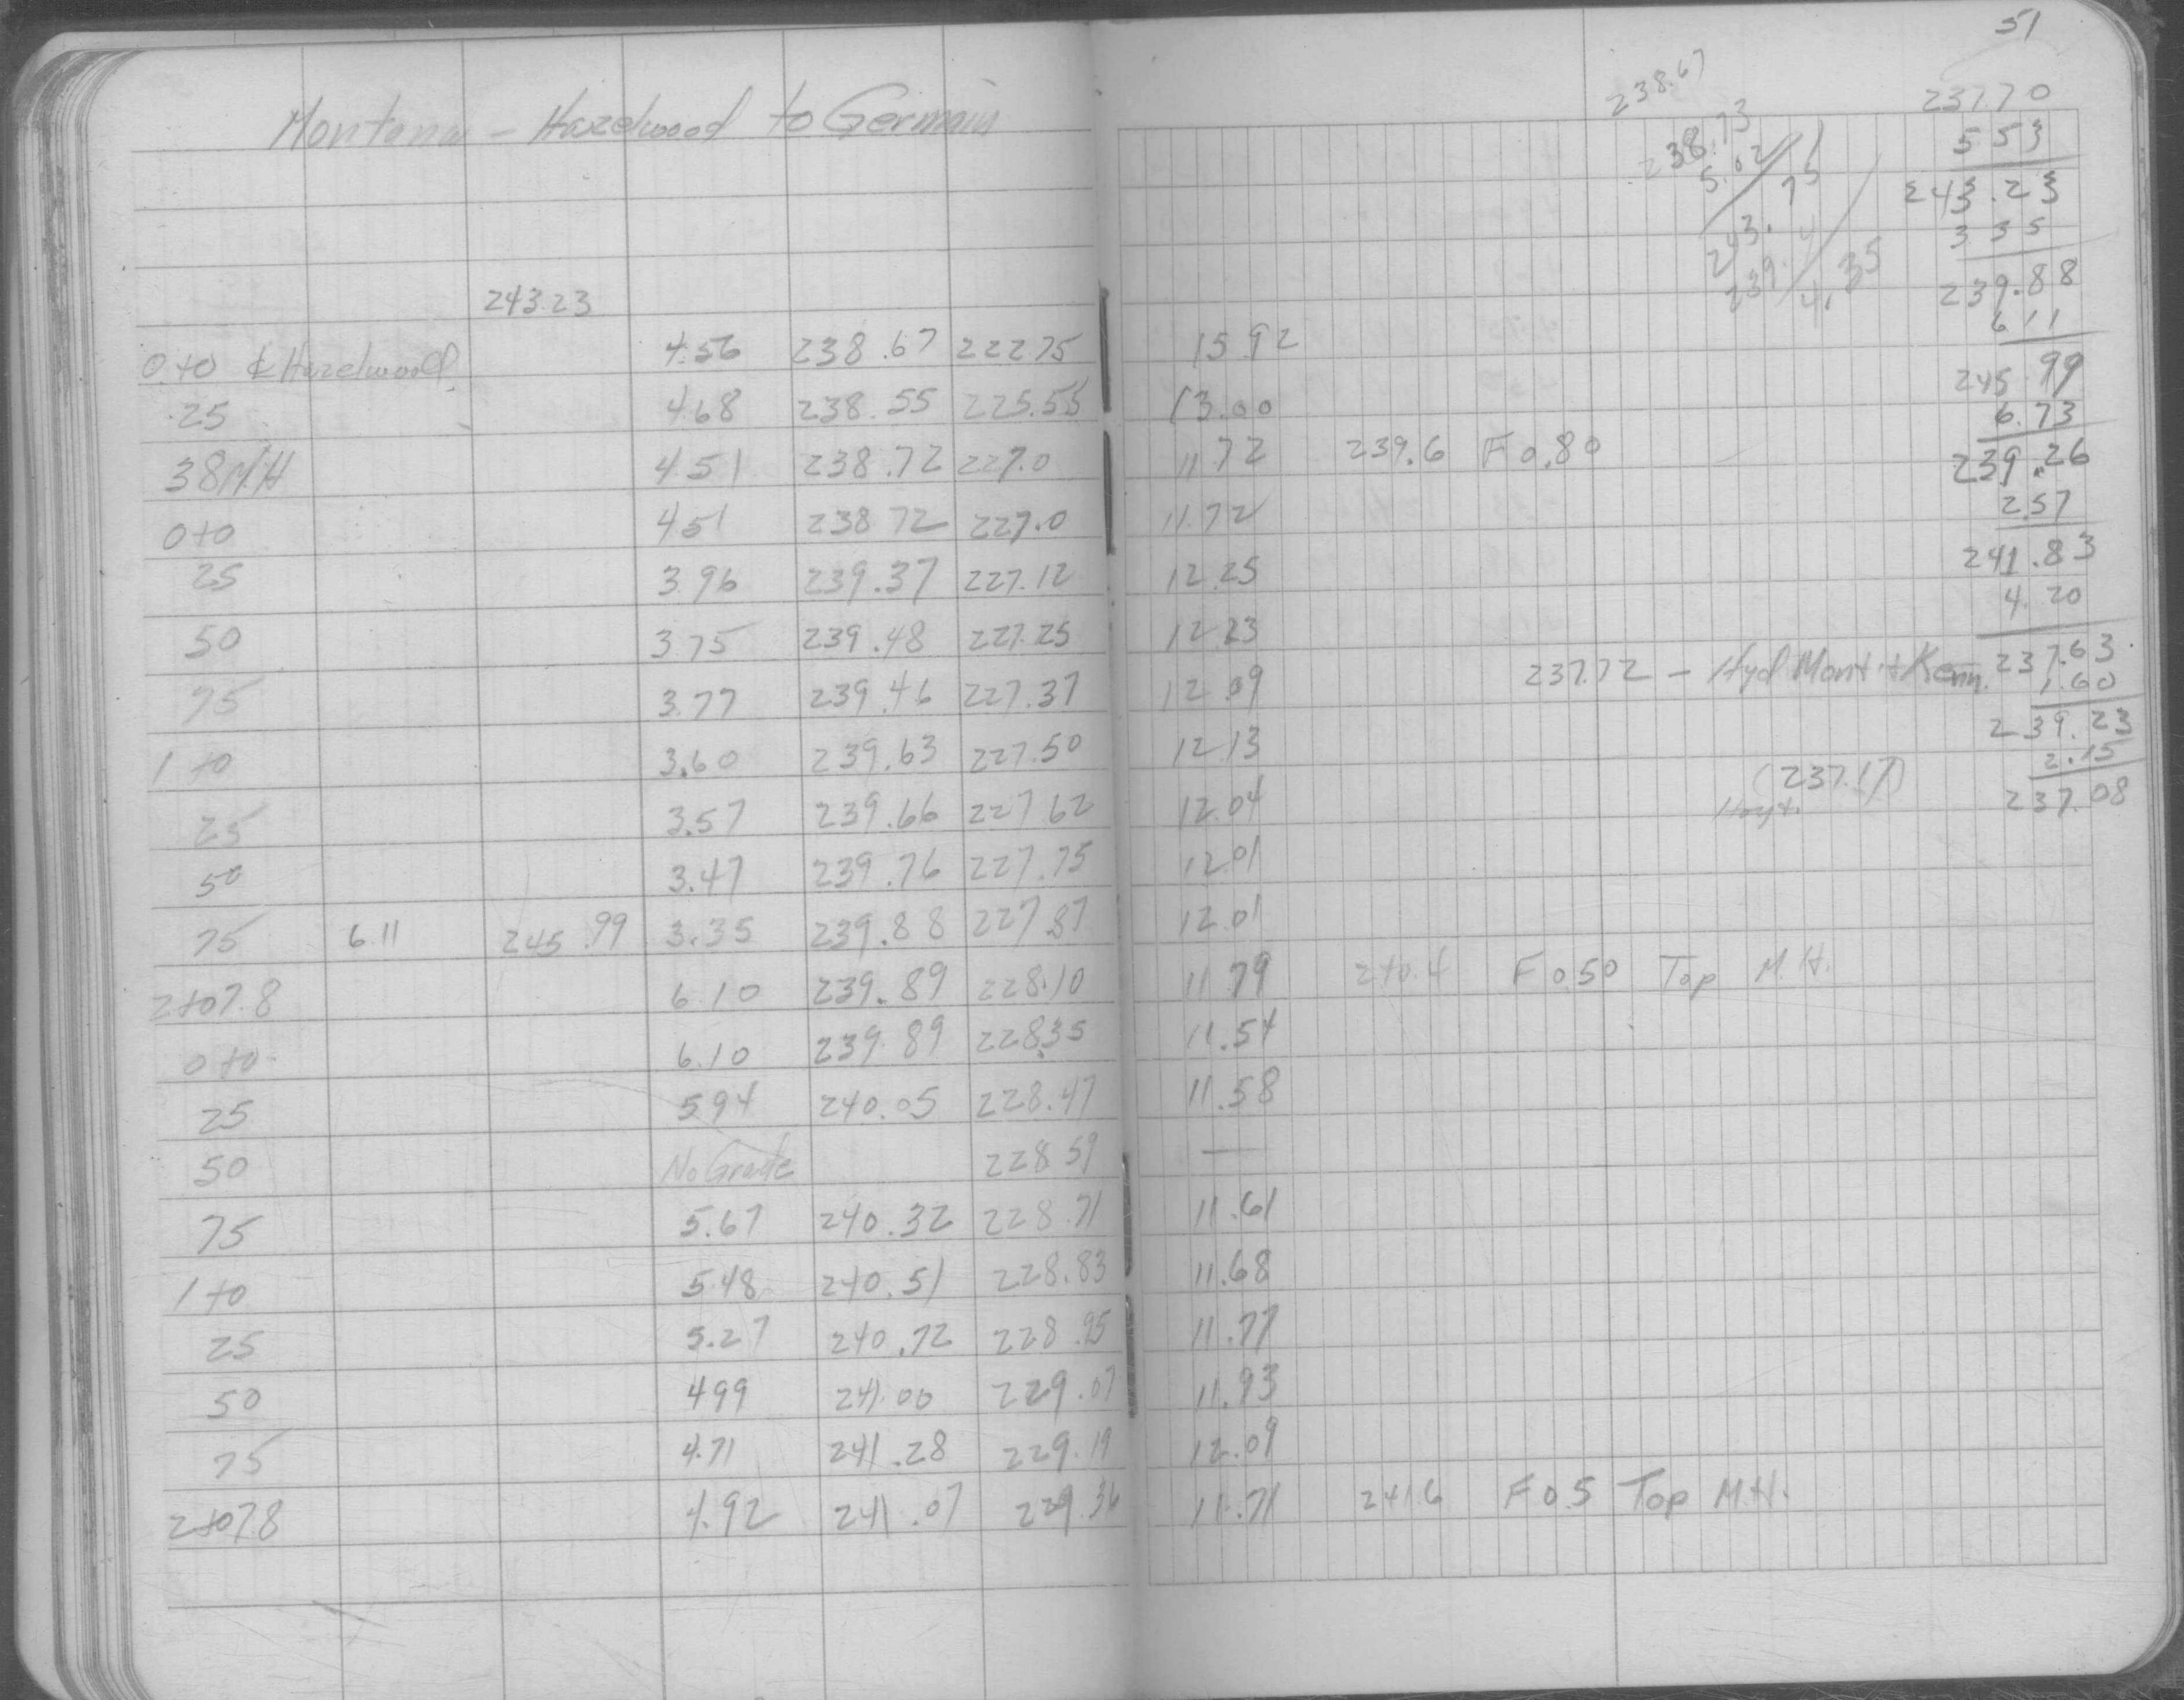 51
Montana - Hazelwood to Germain
243.23
0+0 ₵ Hazelwood 4.56 238.67 222.75 15.92
25 4.68 238.55 225.55 13.00
38 M.H 4.51 238.72 227.0 11.72 239.6 F 0.80
0+0 4.51 238.72 227.0 11.72
25 3.96 239.37 227.12 12.25
50 3.75 239.48 227.25 12.23
75 3.77 239.46 227.37 12.09
1+0 3.60 239.63 227.50 12.13
25 3.57 239.66 227.62 12.04
50 3.47 239.76 227.75 12.01
75 6.11 245.99 3.35 239.88 227.87 12.01
2+07.8 6.10 239.89 228.10 11.79 240.4 F 0.50 Top M.H.
0+0 6.10 239.89 228.35 11.54
25 5.94 240.05 228.47 11.58
50 No Grade 228.59 —
75 5.67 240.32 228.71 11.61
1+0 5.48 240.51 228.83 11.68
25 5.27 240.72 228.95 11.77
50 4.99 241.00 229.07 11.93
75 4.71 241.28 229.19 12.09
2+078 4.92 241.07 229.36 11.71 241.6 F 0.5 Top M.H.
238.67
238.73
5.02
243.75
239.4
4.35
237.70
5 53
243.23
3 35
239.88
6 11
245.99
6.73
239.26
2.57
241.83
4.20
237.72 - Hyd Mont + Kenn. 237.63
1.60
239.23
2.15
(237.17) 237.08
Hoyt.